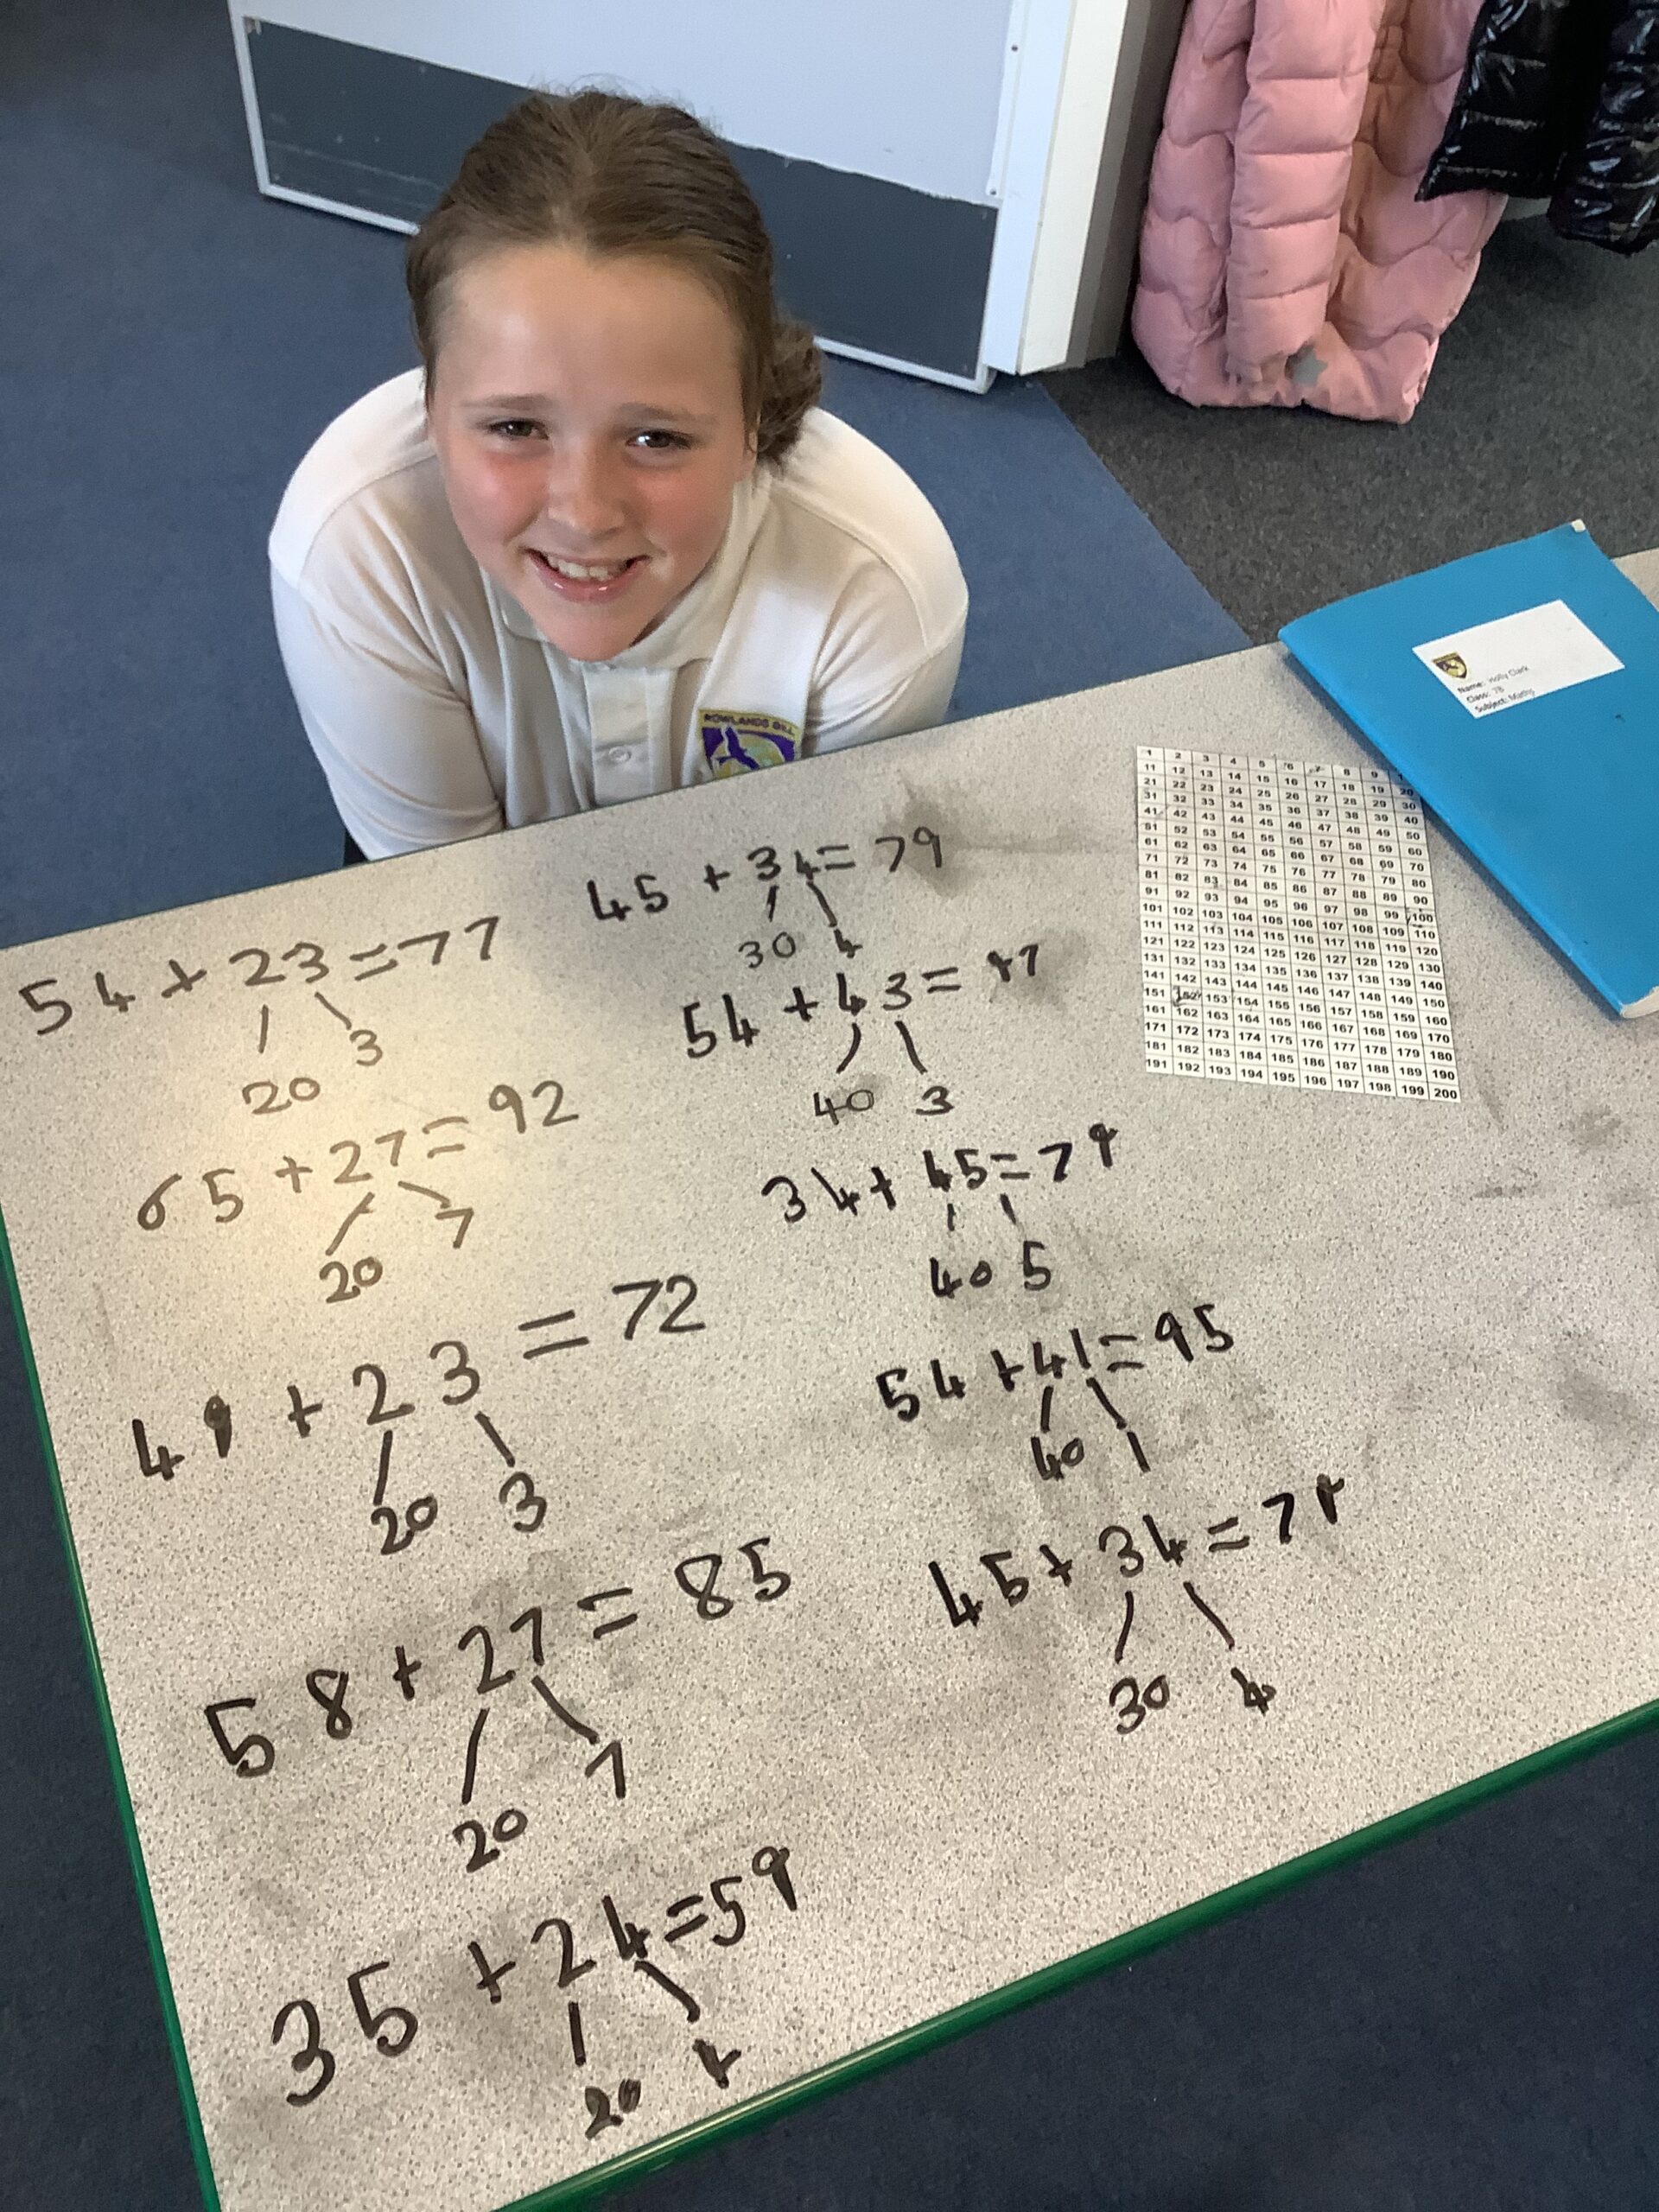 ROWLANDS GILL
Name: Holly Clark
Class: 7B
Subject: Maths
54 + 23 = 77
20 3
65 + 27 = 92
20 7
49 + 23 = 72
20 3
58 + 27 = 85
20 7
35 + 24 = 59
20 4
45 + 34 = 79
30 4
54 + 43 = 97
40 3
34 + 45 = 79
40 5
54 + 41 = 95
40 1
45 + 34 = 79
30 4
1 2 3 4 5 6 7 8 9
11 12 13 14 15 16 17 18 19 20
21 22 23 24 25 26 27 28 29 30
31 32 33 34 35 36 37 38 39 40
41 42 43 44 45 46 47 48 49 50
51 52 53 54 55 56 57 58 59 60
61 62 63 64 65 66 67 68 69 70
71 72 73 74 75 76 77 78 79 80
81 82 83 84 85 86 87 88 89 90
91 92 93 94 95 96 97 98 99 100
101 102 103 104 105 106 107 108 109 110
111 112 113 114 115 116 117 118 119 120
121 122 123 124 125 126 127 128 129 130
131 132 133 134 135 136 137 138 139 140
141 142 143 144 145 146 147 148 149 150
151 152 153 154 155 156 157 158 159 160
161 162 163 164 165 166 167 168 169 170
171 172 173 174 175 176 177 178 179 180
181 182 183 184 185 186 187 188 189 190
191 192 193 194 195 196 197 198 199 200